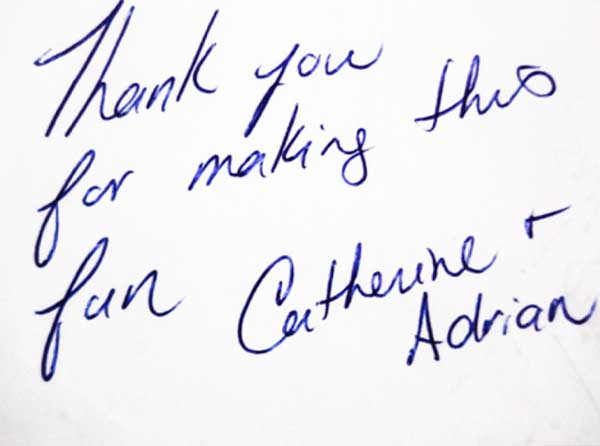 Thank you
for making this
fun Catherine +
Adrian